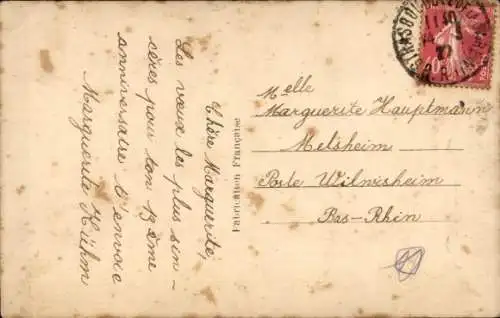 Chère Marguerite,
Les vœux les plus sin-
cères pour ton 13ème
anniversaire t'envoie
Marguerite Kühm
Fabrication Française
Melle
Marguerite Hauptmann
Melsheim
Poste Wilwisheim
Bas-Rhin